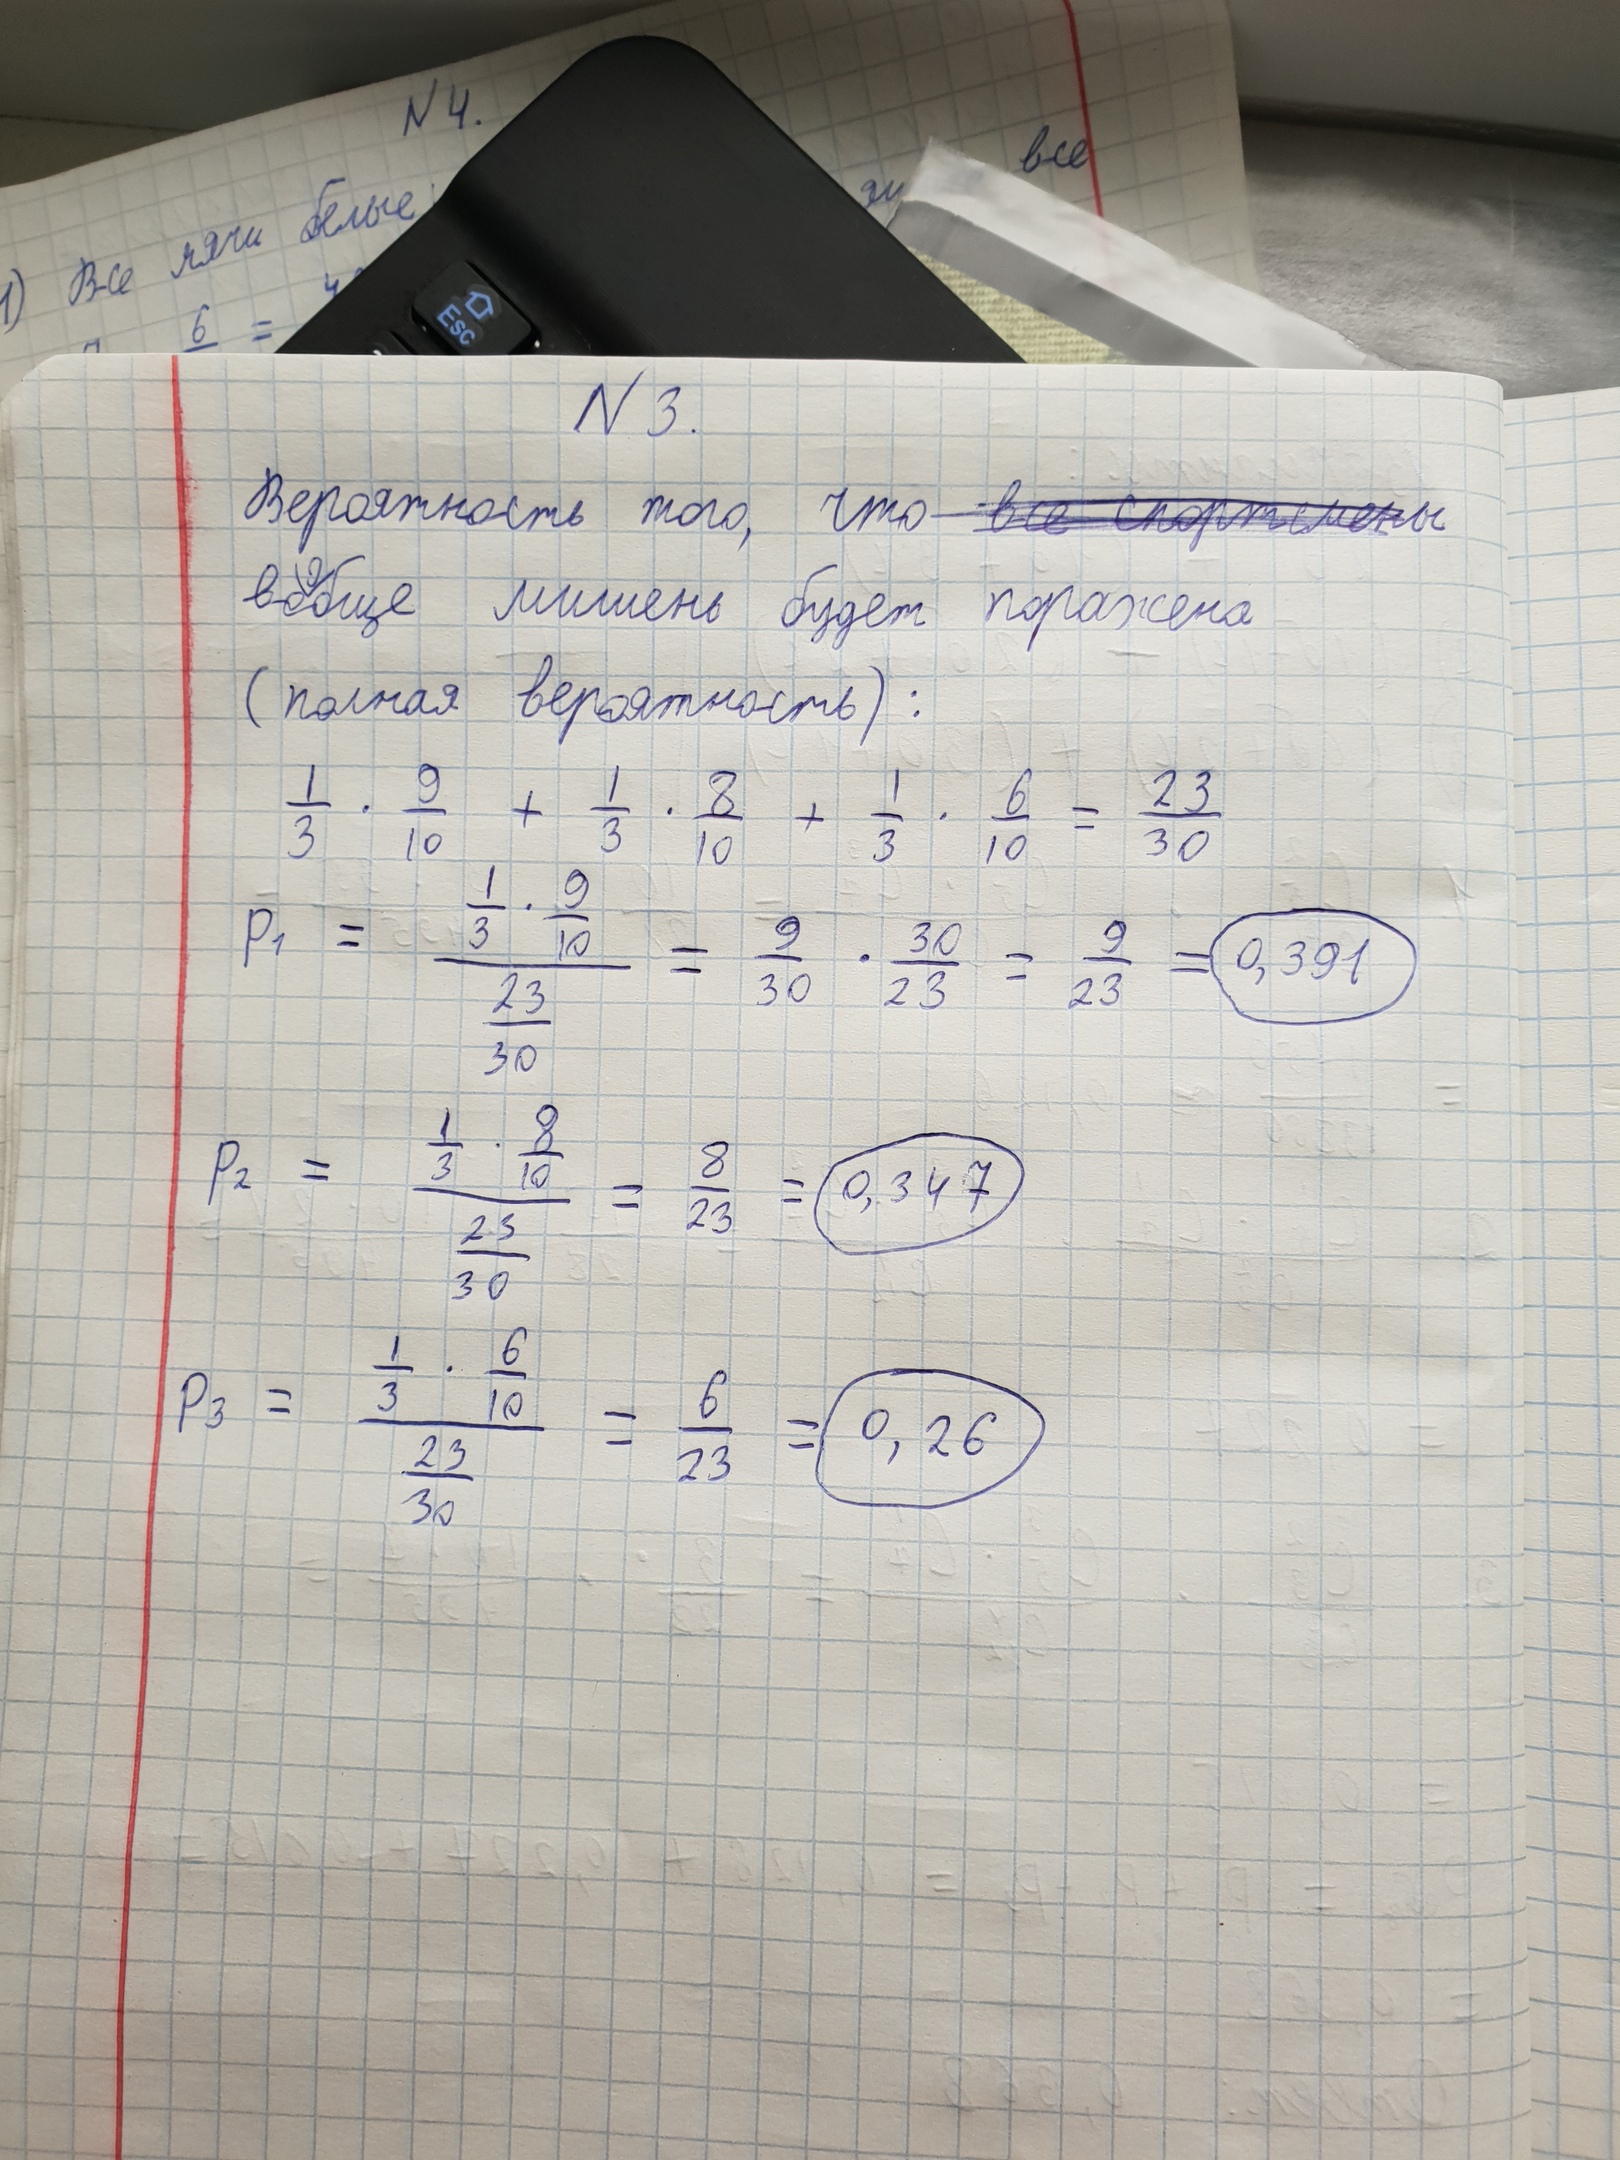 N 4.
все
1) Все мячи белые
6
=
Esc
N 3.
Вероятность того, что все спортсмены
вообще мишень будет поражена
(полная вероятность):
1/3 · 9/10 + 1/3 · 8/10 + 1/3 · 6/10 = 23/30
P1 = (1/3 · 9/10) / (23/30) = 9/30 · 30/23 = 9/23 = 0,391
P2 = (1/3 · 8/10) / (23/30) = 8/23 = 0,347
P3 = (1/3 · 6/10) / (23/30) = 6/23 = 0,26